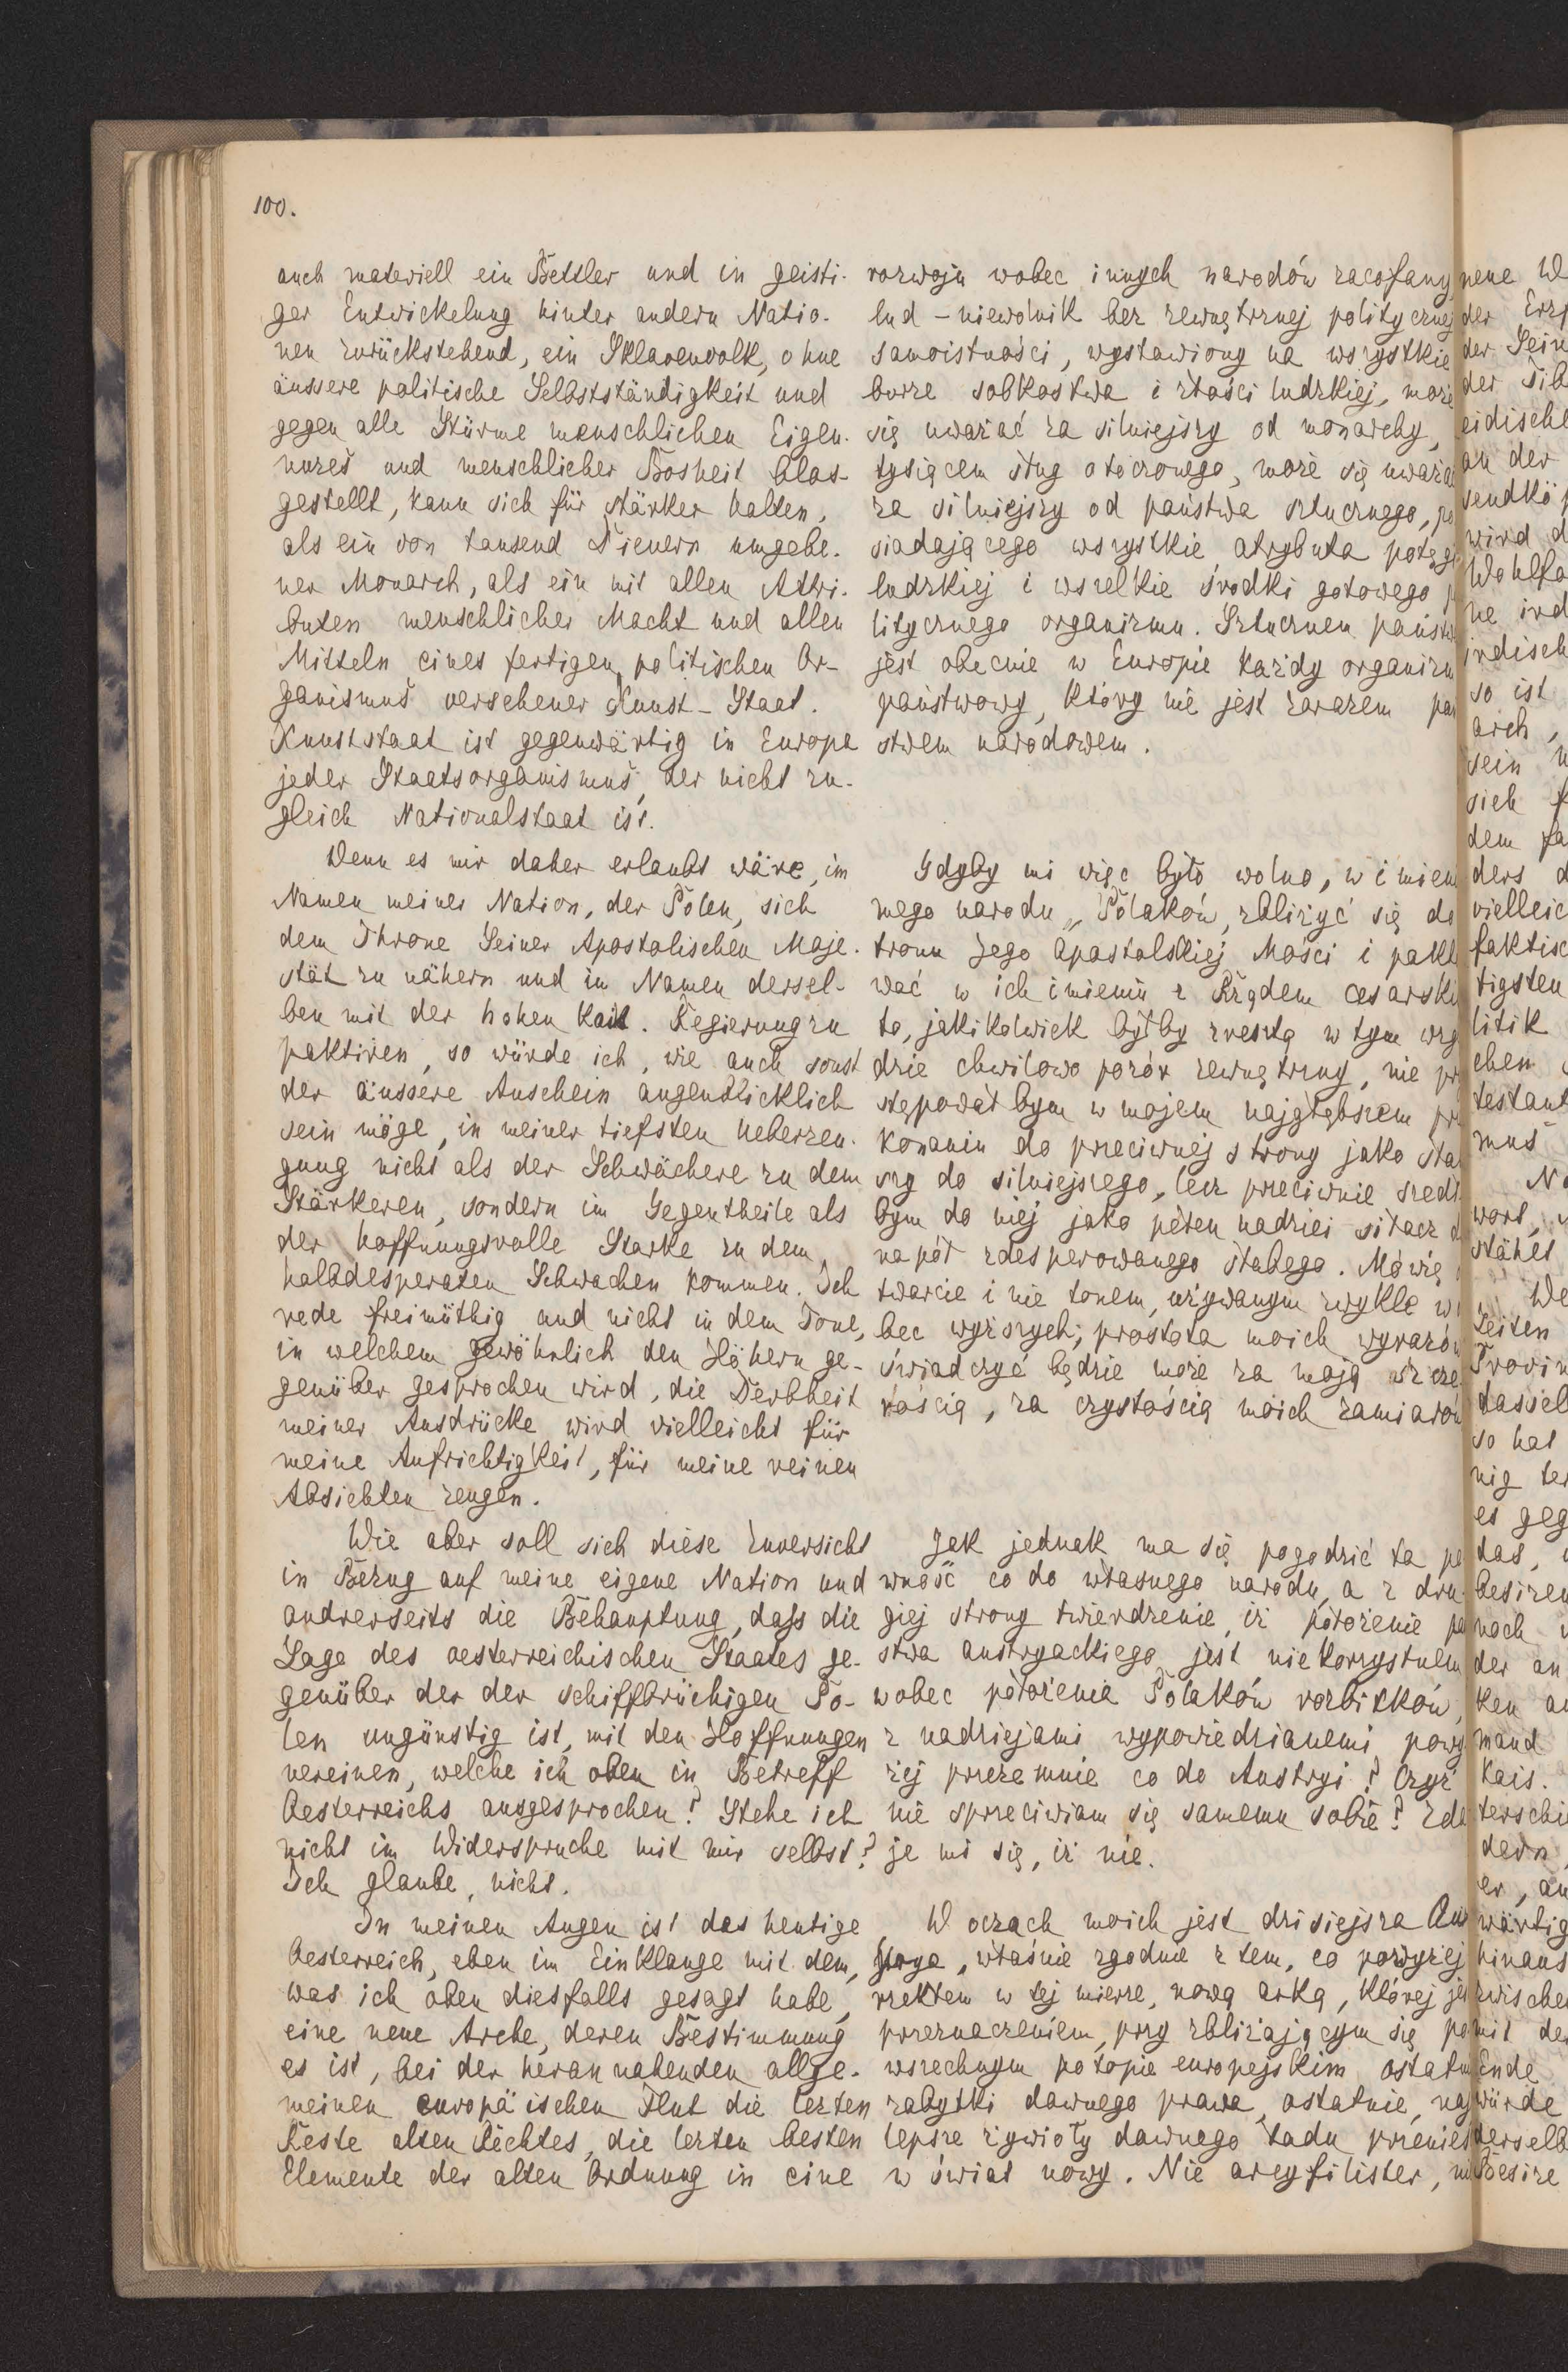 100.
auch materiell ein Bettler und in geisti-
ger Entwickelung hinter andern Natio-
nen zurückstehend, ein Sklavenvolk, ohne
äussere politische Selbstständigkeit und
gegen alle Stürme menschlichen Eigen-
nuzes und menschlicher Bosheit blos-
gestellt, kann sich für stärker halten,
als ein von tausend Dienern umgebe-
ner Monarch, als ein mit allen Attri-
buten menschlicher Macht und allen
Mitteln eines fertigen politischen Or-
ganismus versehener Kunst-Staat.
Kunststaat ist gegenwärtig in Europa
jeder Staatsorganismus, der nicht zu-
gleich Nationalstaat ist.
Wenn es mir daher erlaubt wäre, im
Namen meiner Nation, der Polen, sich
dem Throne Seiner Apostolischen Maje-
stät zu nähern und im Namen dersel-
ben mit der hohen kais. Regierung zu
paktiren, so würde ich, wie auch sonst
der äussere Anschein augenblicklich
sein möge, in meiner tiefsten Ueberzeu-
gung nicht als der Schwächere zu dem
Stärkeren, sondern im Gegentheile als
der hoffnungsvolle Starke zu dem
halbdesperaten Schwachen kommen. Ich
rede freimüthig und nicht in dem Tone,
in welchem gewöhnlich den Höhern ge-
genüber gesprochen wird, die Derbheit
meiner Ausdrücke wird vielleicht für
meine Aufrichtigkeit, für meine reinen
Absichten zeugen.
Wie aber soll sich diese Zuversicht
in Bezug auf meine eigene Nation und
andrerseits die Behauptung, dass die
Lage des oesterreichischen Staates ge-
genüber der der schiffbrüchigen Po-
len ungünstig ist, mit den Hoffnungen
vereinen, welche ich oben in Betreff
Oesterreichs ausgesprochen? Stehe ich
nicht im Widerspruche mit mir selbst?
Ich glaube, nicht.
In meinen Augen ist das heutige
Oesterreich, eben im Einklange mit dem,
was ich oben diesfalls gesagt habe,
eine neue Arche, deren Bestimmung
es ist, bei der heran nahenden allge-
meinen europäischen Flut die lezten
Reste alten Rechtes, die lezten besten
Elemente der alten Ordnung in eine
rozwoju wobec innych narodów zacofany
lud – niewolnik bez zewnętrznej politycznej
samoistności, wystawiony na wszystkie
burze sobkostwa i złości ludzkiej, może
się uważać za silniejszy od monarchy,
tysiącem sług otoczonego, może się uważa
za silniejszy od państwa sztucznego, po
siadającego wszystkie atrybuta potęgi
ludzkiej i wszelkie środki gotowego p
litycznego organizmu. Sztucznem państw
jest obecnie w Europie każdy organizm
państwowy, który nie jest zarazem pań
stwem narodowem.
Gdyby mi więc było wolno, w imien
mego narodu, Polaków, zbliżyć się do
tronu Jego Apostolskiej Mości i pakto
wać w ich imieniu z Rządem cesarski
to, jakikolwiek byłby zresztą w tym wzg
dzie chwilowo pozór zewnętrzny, nie pr
stępował bym w mojem najgłębszem prz
konaniu do przeciwnej strony jako słab
szy do silniejszego, lecz przeciwnie szedł
bym do niej jako pełen nadziei siłacz d
na pół zdesperowanego słabego. Mówię o
twarcie i nie tonem, używanym zwykle w
bec wyższych; prostota moich wyrazów
świadczyć będzie może za moją szcze
rością, za czystością moich zamiarów
Jak jednak ma się pogodzić ta pe
wność co do własnego narodu, a z dru-
giej strony twierdzenie, iż położenie pa
stwa austryackiego jest niekorzystnem
wobec położenia Polaków rozbitków,
z nadziejami wypowiedzianemi powy
żej przezemnie co do Austryi? Czyż
nie sprzeciwiam się samemu sobie? Zda
je mi się, iż nie.
W oczach moich jest dzisiejsza Aus
trya, właśnie zgodnie z tem, co powyżej
rzekłem w tej mierze, nową arką, której je
przeznaczeniem, przy zbliżającym się po
wszechnym potopie europejskim ostatn
zabytki dawnego prawa, ostatnie, naj
lepsze żywioły dawnego ładu przenieś
w świat nowy. Nie arcyfilister, ni
nene W
der Erz
der Sein
der Sib
eidische
an der
sendkö
wird d
Wohlfa
ne ird
irdisch
so ist
arch,
sein u
sich f
dem fa
ders d
vielleic
faktisc
tigsten
litik
chen
testant
mus
No
wort,
stähel
We
Zeiten
Provin
dassel
so hat
nig ter
es geg
das,
besizen
noch
der an
ken au
mand
Kais.
terschie
dern,
er, an
wärtig
hinaus
zwische
mit der
Ende
würde
derselb
Besize